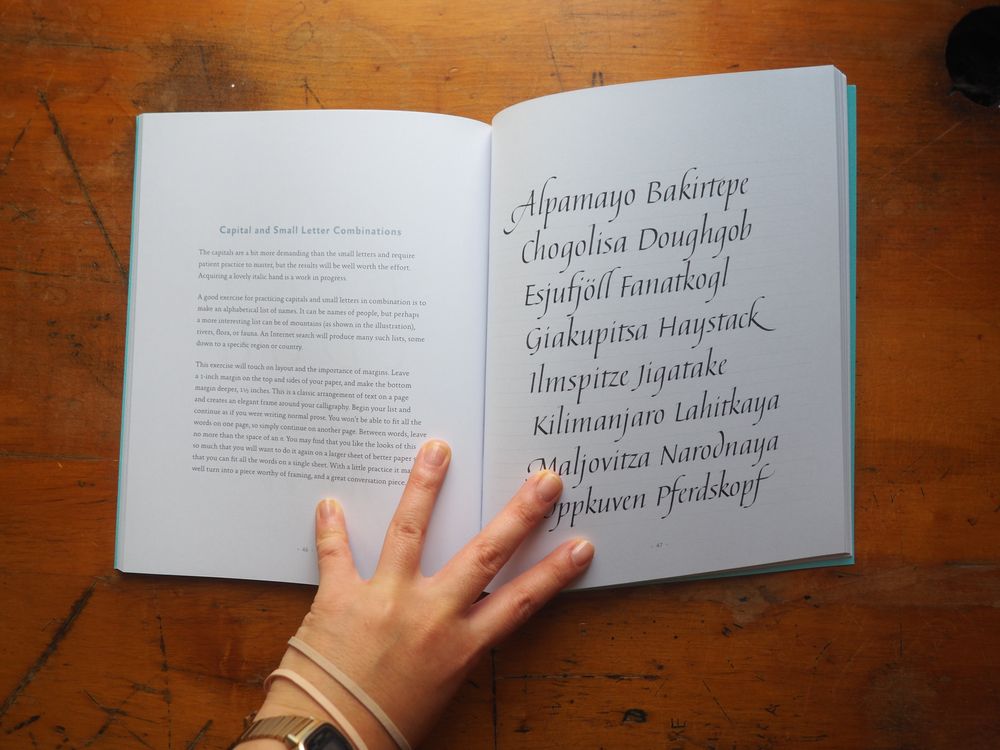 Capital and Small Letter Combinations
The capitals are a bit more demanding than the small letters and require
patient practice to master, but the results will be well worth the effort.
Acquiring a lovely italic hand is a work in progress.
A good exercise for practicing capitals and small letters in combination is to
make an alphabetical list of names. It can be names of people, but perhaps
a more interesting list can be of mountains (as shown in the illustration),
rivers, flora, or fauna. An Internet search will produce many such lists, some
down to a specific region or country.
This exercise will touch on layout and the importance of margins. Leave
a 1-inch margin on the top and sides of your paper, and make the bottom
margin deeper, 1½ inches. This is a classic arrangement of text on a page
and creates an elegant frame around your calligraphy. Begin your list and
continue as if you were writing normal prose. You won't be able to fit all the
words on one page, so simply continue on another page. Between words, leave
no more than the space of an n. You may find that you like the looks of this
so much that you will want to do it again on a larger sheet of better paper
that you can fit all the words on a single sheet. With a little practice it
well turn into a piece worthy of framing, and a great conversation piece.
- 46 -
Alpamayo Bakirtepe
Chogolisa Doughgob
Esjufjöll Fanatkogl
Giakupitsa Haystack
Ilmspitze Jigatake
Kilimanjaro Lahitkaya
Maljovitza Narodnaya
Pferdskopf
- 47 -